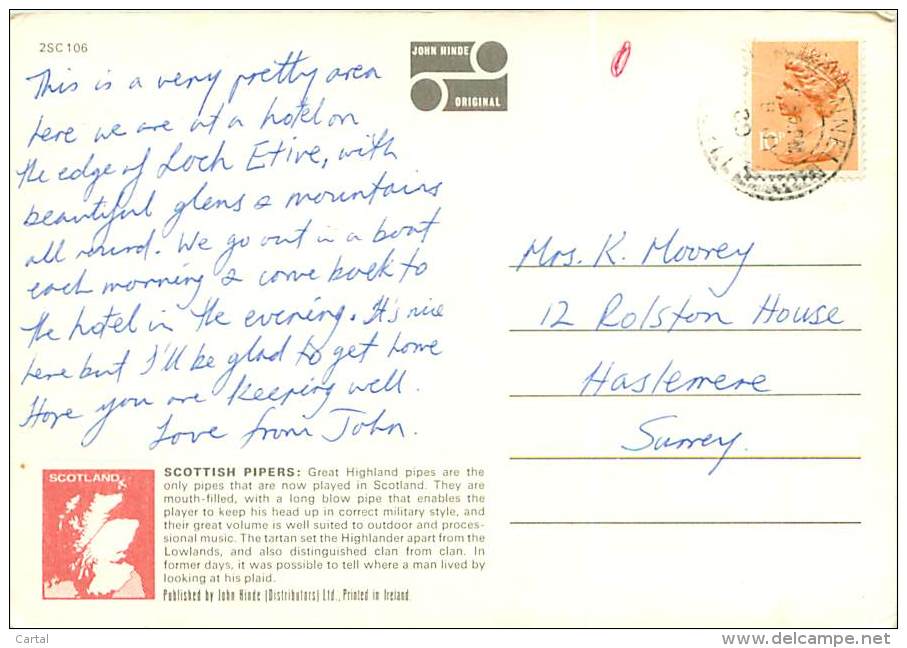 2SC 106
This is a very pretty area
here we are at a hotel on
the edge of Loch Etive, with
beautiful glens & mountains
all round. We go out in a boat
each morning & come back to
the hotel in the evening. It's nice
here but I'll be glad to get home
Hope you are keeping well.
Love from John.
JOHN HINDE
ORIGINAL
Mrs. K. Moorey
12 Rolston House
Haslemere
Surrey.
SCOTLAND
SCOTTISH PIPERS: Great Highland pipes are the
only pipes that are now played in Scotland. They are
mouth-filled, with a long blow pipe that enables the
player to keep his head up in correct military style, and
their great volume is well suited to outdoor and proces-
sional music. The tartan set the Highlander apart from the
Lowlands, and also distinguished clan from clan. In
former days, it was possible to tell where a man lived by
looking at his plaid.
Published by John Hinde (Distributors) Ltd., Printed in Ireland.
Cartal
www.delcampe.net